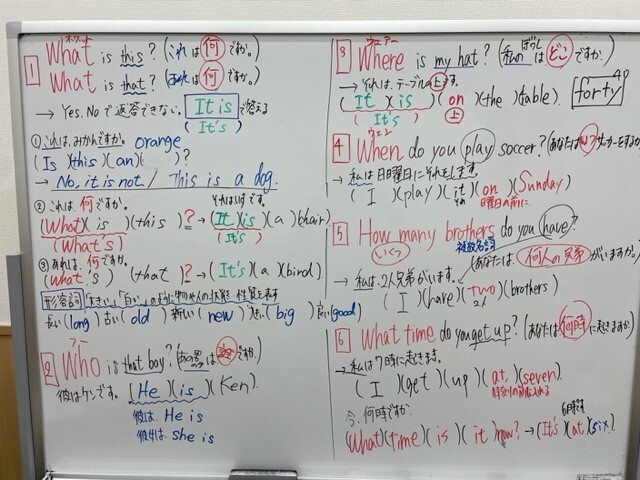 ホワット
1 What is this? (これは何ですか。)
What is that? (あれは何ですか。)
→ Yes, Noで返答できない。 It is で答える
(It's)
①これは、みかんですか。 orange
(Is)(this)(an)( )?
→ No, it is not. / This is a dog.
②これは何ですか。 それはいすです。
(What)(is)(this)? → (It)(is)(a)chair.
(What's) (It's)
③あれは、何ですか。
(What's)(that)? → (It's)(a)(bird).
形容詞
長い(long) 古い(old) 新しい(new) 大きい(big) 良い(good)
フー
2 Who is that boy?
彼はケンです。 (He)(is)(Ken).
彼は He is
彼女は she is
ウェアー
3 Where is my hat? (私のぼうしはどこですか。)
→ それは、テーブルの上です。
(It)(is)(on)(the)(table).
(It's) 上
forty 40
ウェン
4 When do you play soccer? (あなたはいつサッカーをするか)
→ 私は日曜日にそれをします。
(I)(play)(it)(on)(Sunday)
それ 曜日の前に
5 How many brothers do you have?
いくつ 複数名詞 (あなたは、何人の兄弟がいますか。)
→ 私は、2人兄弟がいます。
(I)(have)(two)(brothers)
2人
6 What time do you get up? (あなたは何時に起きますか)
→ 私は7時に起きます。
(I)(get)(up)(at)(seven).
今、何時ですか。 6時です
(What)(time)(is)(it)now? → (It's)(at)(six).